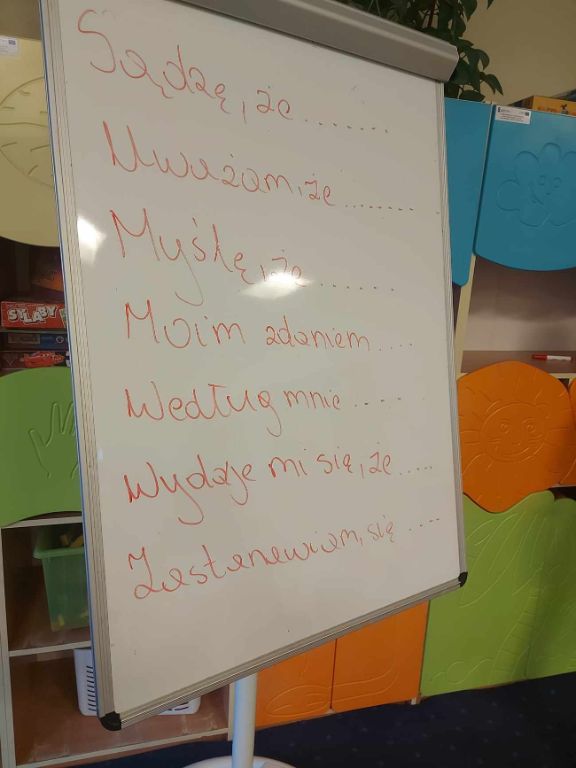 Sądzę, że .......
Uważam, że ........
Myślę, że ......
Moim zdaniem ....
Według mnie ....
Wydaje mi się, że .....
Zastanawiam, się ....
SYLABY